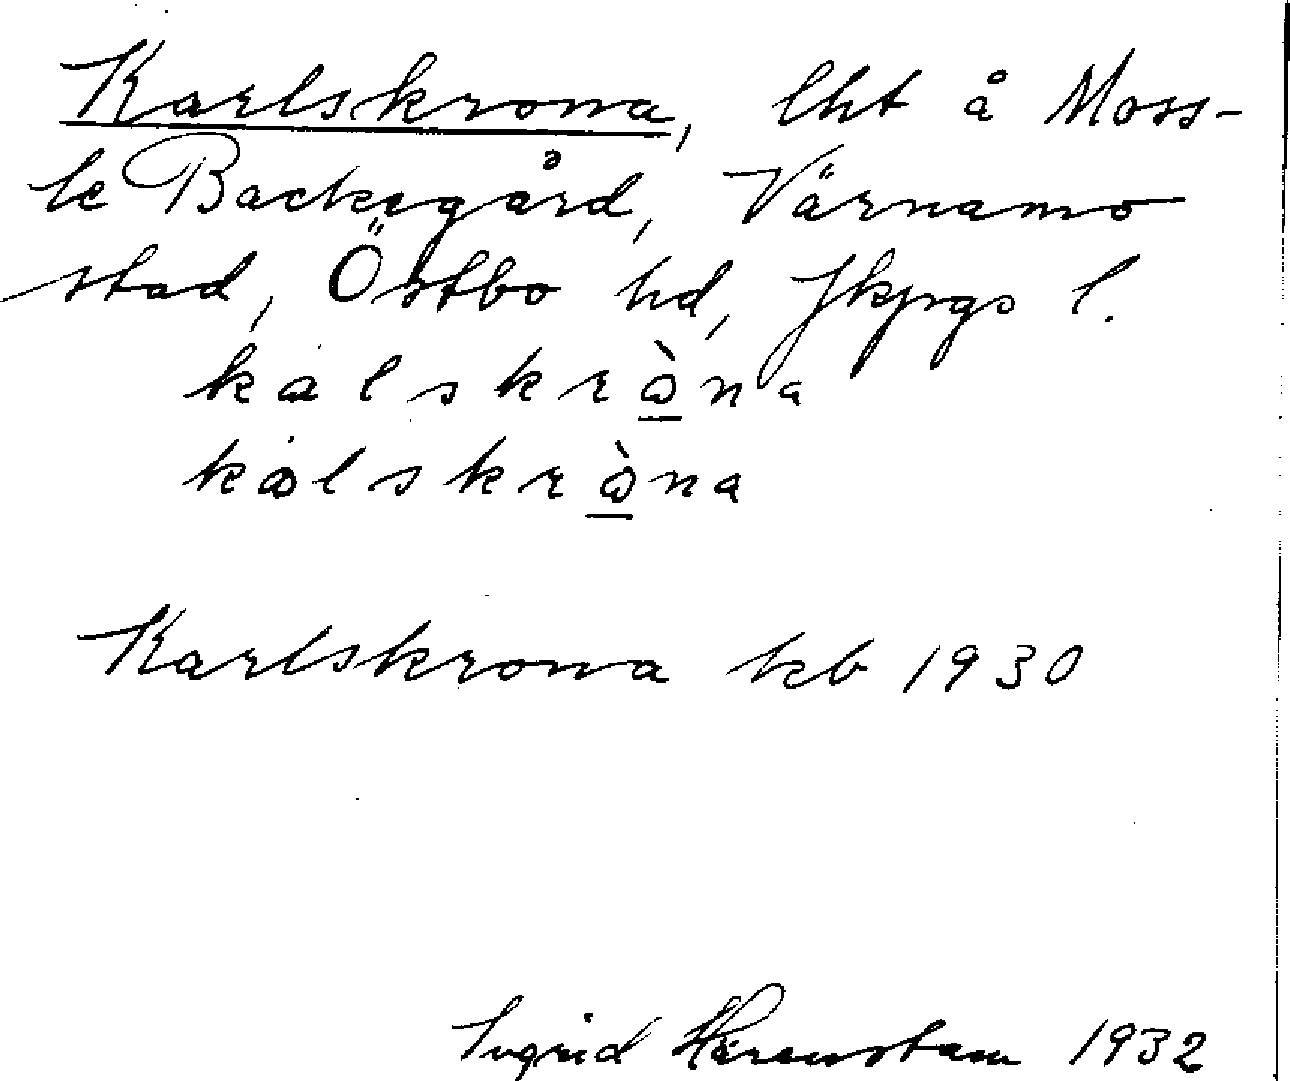 Karlskrona, lht å Moss-
le Backegård, Värnamo
stad, Östbo hd, Jkpgs l.
kalskròna
kalskròna
Karlskrona kb 1930
Ingrid Härenstam 1932